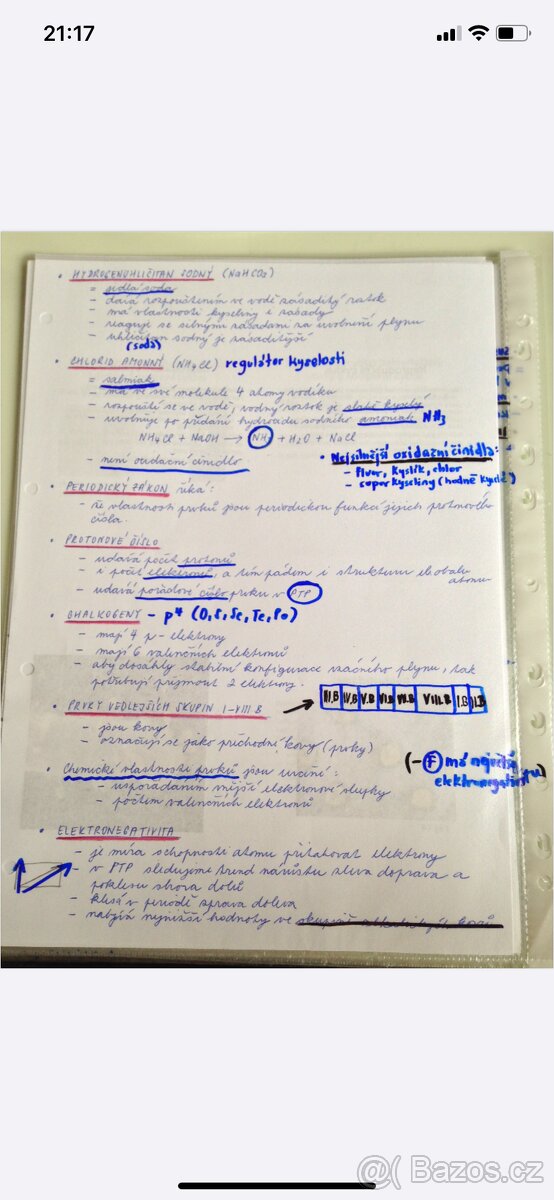 21:17
• HYDROGENUHLIČITAN SODNÝ (NaHCO₃)
= jedlá soda
– dává rozpouštěním ve vodě zásaditý roztok
– má vlastnosti kyseliny i zásady
– reaguje se silnými zásadami na uvolnění plynu
– uhličitan sodný je zásaditější
(soda)
• CHLORID AMONNÝ (NH₄Cl) regulátor kyselosti
= salmiak
– má ve své molekule 4 atomy vodíku
– rozpouští se ve vodě, vodný roztok je slabě kyselý
– uvolňuje po přidání hydroxidu sodného amoniak NH3
NH₄Cl + NaOH → NH₃ + H₂O + NaCl
– není oxidační činidlo
• Nejsilnější oxidační činidla:
– fluor, kyslík, chlor
– superkyseliny (hodně kyselé)
• PERIODICKÝ ZÁKON říká:
– že vlastnosti prvků jsou periodickou funkcí jejich protonového
čísla.
• PROTONOVÉ ČÍSLO
– udává počet protonů
– i počet elektronů, a tím pádem i strukturu el. obalu
atomu
– udává pořadové číslo prvku v PTP
• CHALKOGENY – p⁴ (O, S, Se, Te, Po)
– mají 4 p-elektrony
– mají 6 valenčních elektronů
– aby dosáhly stabilní konfigurace vzácného plynu, tak
potřebují přijmout 2 elektrony.
• PRVKY VEDLEJŠÍCH SKUPIN I–VIII.B → III.B IV.B V.B VI.B VII.B VIII.B I.B II.B
– jsou kovy
– označují se jako přechodné kovy (prvky)
(– F má největší
elektronegativitu)
• Chemické vlastnosti prvků jsou určeny:
– uspořádáním vnější elektronové slupky
– počtem valenčních elektronů
• ELEKTRONEGATIVITA
– je míra schopnosti atomu přitahovat elektrony
– v PTP sledujeme trend nárůstu zleva doprava a
poklesu shora dolů
– klesá v periodě zprava doleva
– nabývá nejnižší hodnoty ve skupině alkalických kovů
@( Bazos.cz